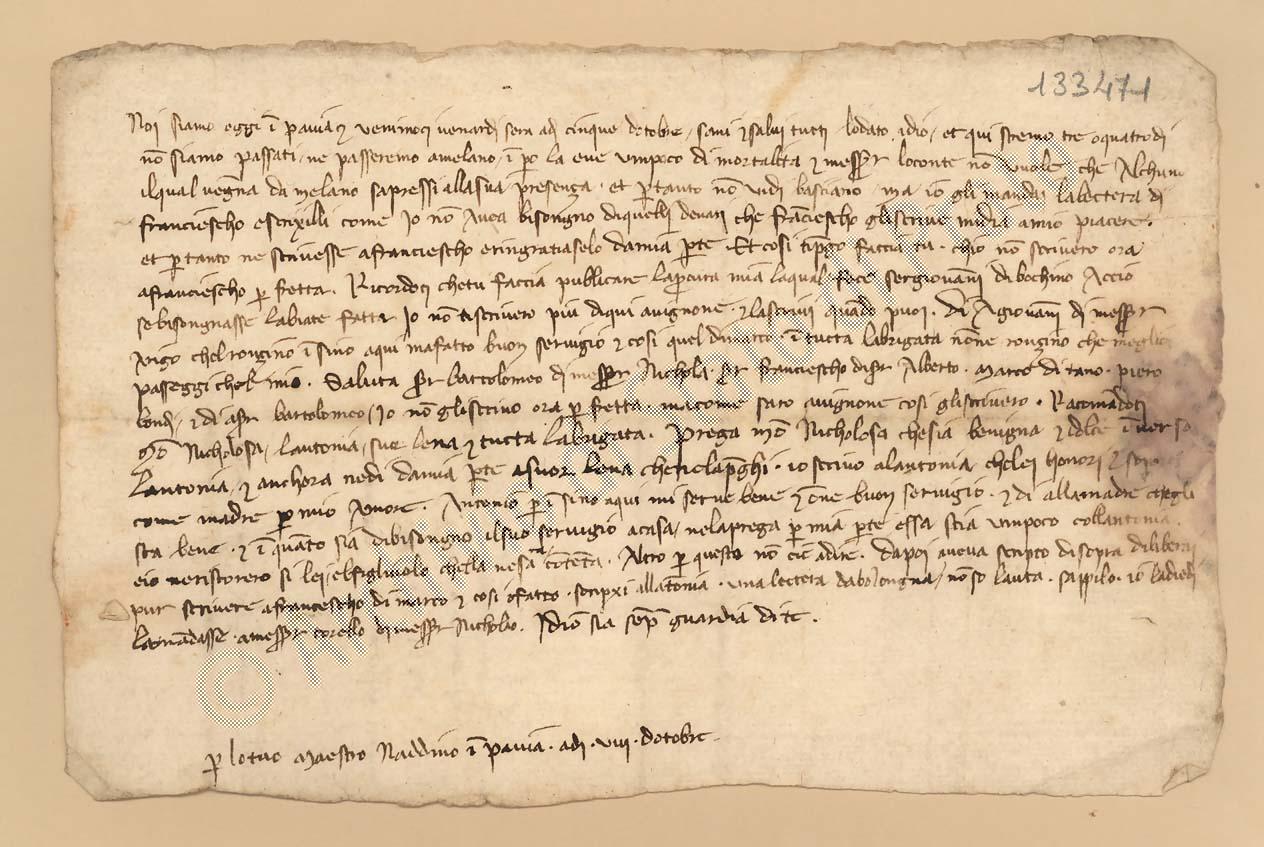 133471
Noi siamo oggi i pavia venimoci venardi sera adi cinque dotobre / sani e salvi tutti lodato idio / et qui staremo tre o quatro di
nō siamo passati / ne passeremo amelano / i po la eve umpoco di mortalita e messer loconte nō vuole che Alchuno
ilqual vegna da melano sapressi allasua presenza . et p tanto nō vidi basciano / ma io gli mandai la lectera di
franciescho escrixilli come Io nō Avea bisongno diquelli denari che franciescho gliscrive midia amio piacere .
et p tanto ne scrivesse afranciescho eringratiaselo damia pte . Et cosi tipgo faccia tu . chio nō scrivero ora
afranciescho p fretta . Ricordoti chetu faccia publicare lapcura mia laqual fece sergiovāni di bochino Accio
sebisongnasse labiate fatta Io nō tiscrivero piu diqui avignone . e lascrivi quādo puoi . di Agiovāni di messer
Arigo chel rongino i sino aqui mafatto buon servigio e cosi quel dimarco . i tucta labrigata nōne rongino che meglio
passeggi chel mio . Saluta ser bartolomeo di messer Nichola . ser franciescho di ser Alberto . Marco di tano . piero
bondi . e di aser bartolomeo / Io nō gliscrivo ora p fretta . macome saro avignone cosi gliscrivero . Racomādoti
Mō Nicholosa / lantonia / suor lena e tucta labrigata . Prega mō Nicholosa chesia benigna e dolce i verso
Lantonia . e anchora nedi damia pte asuor lena chenelapghi . io scrivo alantonia chelei honori e
come madre p mio Amore . Antonio p i sino aqui mi serve bene e one buon servigio . e di allamadre chegli
sta bene . e i quāto sia dibisongno ilsuo servigio acasa / nelaprega p mia pte essa stia umpoco collantonia .
eio neristorero si lei / elfigliuolo chella nesara cōtēta . Altro p questo nō cie adire . dapoi aveva scripto disopra diliberai
pur scrivere afranciescho di marco e cosi o fatto . scripxi allātonia . una lectera dabolongna / nō so lauta . sappilo . io ladiedi
lamādasse . amesser torello di messer Nicholo . Idio sia semp guardia di te .
p lo tuo Maestro Naddino i pavia . adi . viii . dotobre .